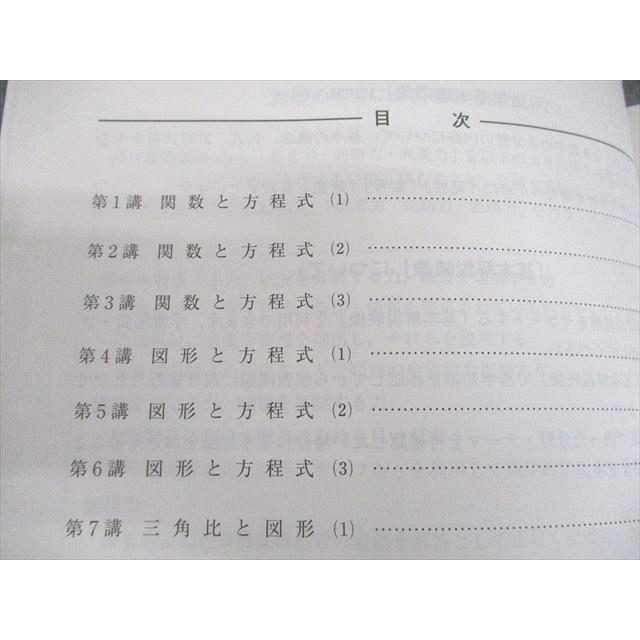 目 次
第1講 関数と方程式 (1) ……………………
第2講 関数と方程式 (2) ……………………
第3講 関数と方程式 (3) ……………………
第4講 図形と方程式 (1) ……………………
第5講 図形と方程式 (2) ……………………
第6講 図形と方程式 (3) ……………………
第7講 三角比と図形 (1) ……………………